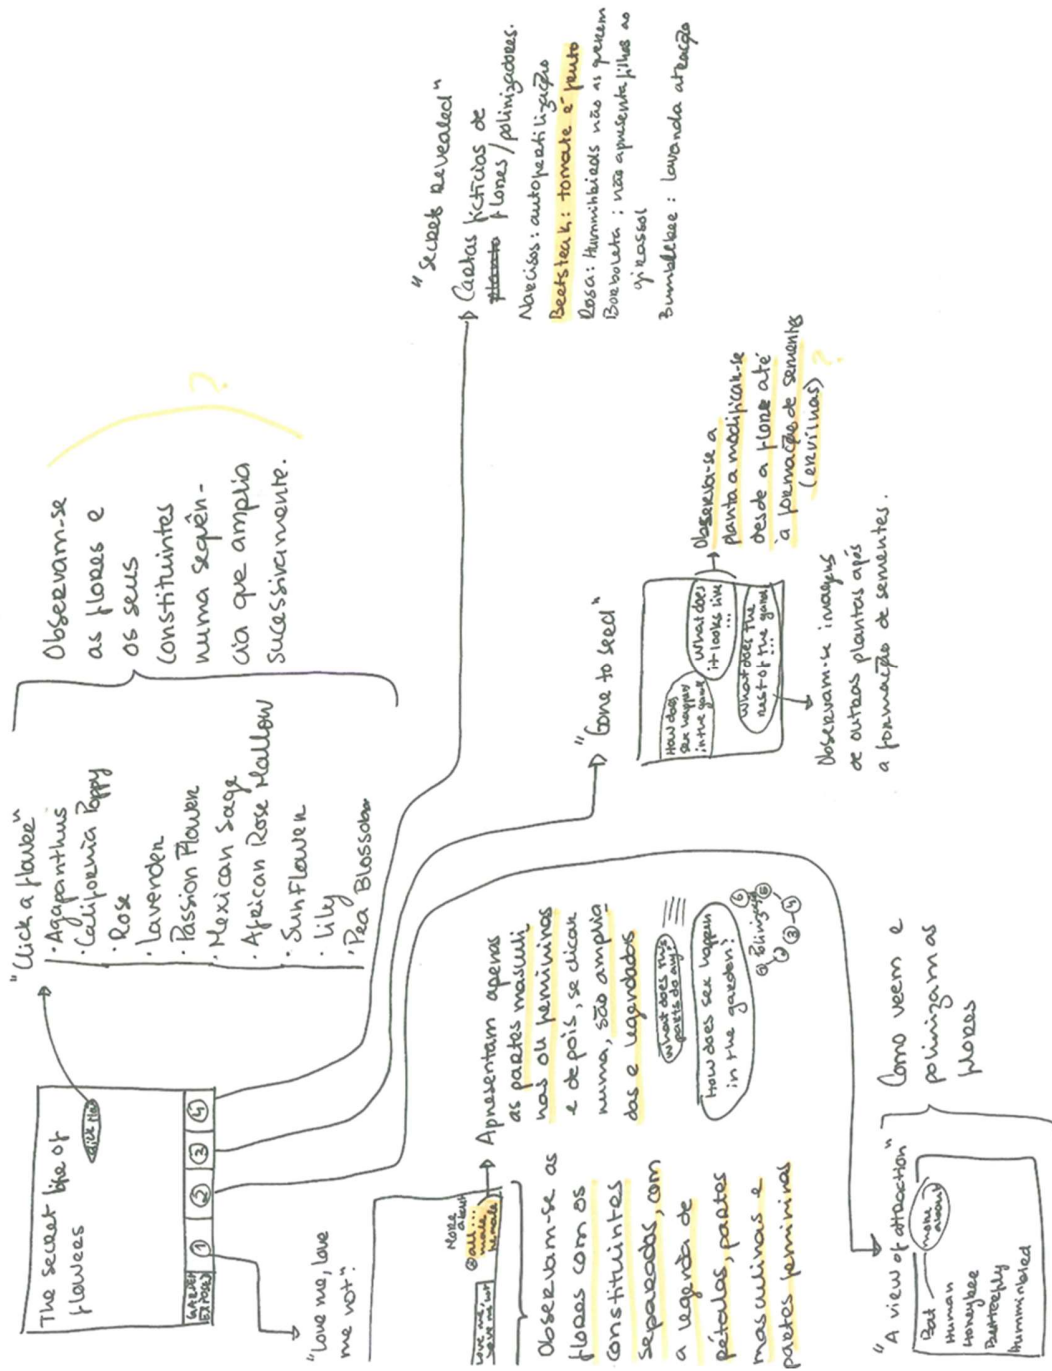 The secret life of
flowers
Click Me
GARDEN
EXPOSED
1
2
3
4
"Click a flower"
· Agapanthus
· California Poppy
· Rose
· Lavender
· Passion Flower
· Mexican Sage
· African Rose Mallow
· Sunflower
· Lily
· Pea Blossom
Observam-se
as flores e
os seus
constituintes
numa sequên-
cia que amplia
sucessivamente.
?
"Love me, love
me not":
Love me,
love me not
More
about
all...
male
female
Observam-se as
flores com os
constituintes
separados, com
a legenda de
pétalas, partes
masculinas e
partes femininas
Apresentam apenas
as partes masculi-
nas ou femininas
e depois, se clicar
numa, são amplia-
das e legendadas
What does this
parts do
How does sex happen
in the garden?
Polinização
"A view of attraction"
Bat
Human
Honeybee
Butterfly
Hummimbird
more
about
Como veem e
polinizam as
flores
"Gone to seed"
How does
sex happen
in the
What does
it looks like
...
What does the
rest of the
...
Observa-se a
planta a modificar-se
desde a flore até
à formação de sementes
(ervilhas)
?
Observam-se imagens
de outras plantas após
a formação de sementes.
"Secret Revealed"
Cartas fictícias de
planta flores/polinizadores.
Narcisos: autofertilização
Beefsteak: tomate é fruto
Rosa: Hummihbirds não as querem
Borboleta: não apresenta filhos ao
girassol
Bumblebee: Lavanda atração